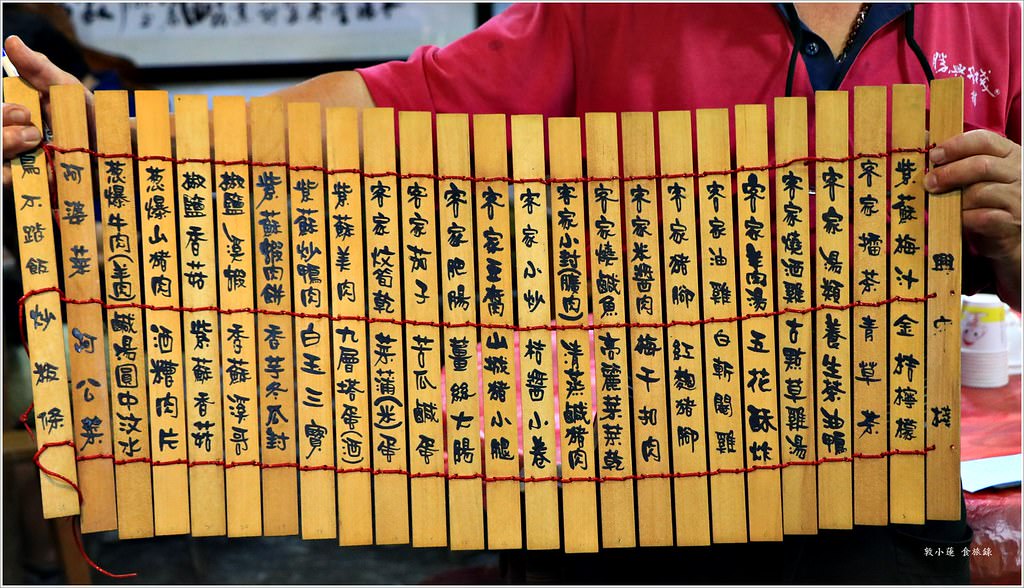 勝興客棧
興 棧
紫蘇梅汁 金桔檸檬
客家擂茶 青草茶
客家湯類 養生茶油鴨
客家燒酒雞 古點草雞湯
客家羊肉湯 五花酥炸
客家油雞 白斬閹雞
客家豬腳 紅麴豬腳
客家米醬肉 梅干扣肉
客家燒鹹魚 高麗菜菜乾
客家小封(腸肉) 清蒸鹹豬肉
客家小炒 桔醬小卷
客家豆腐 山城豬小腿
客家肥腸 薑絲大腸
客家茄子 苦瓜鹹蛋
客家炆筍乾 菜蒲(米)蛋
紫蘇羊肉 九層塔蛋(酒)
紫蘇炒鴨肉 白玉三寶
紫蘇蝦肉餅 香芋冬瓜封
椒鹽溪蝦 香蘇溪哥
椒鹽香菇 紫蘇香菇
蔥爆山豬肉 酒糟肉片
蔥爆牛肉(羊肉) 鹹湯圓中汶水
阿婆菜 阿公菜
鳥不踏飯 炒粄條
敦小蓮 食旅錄